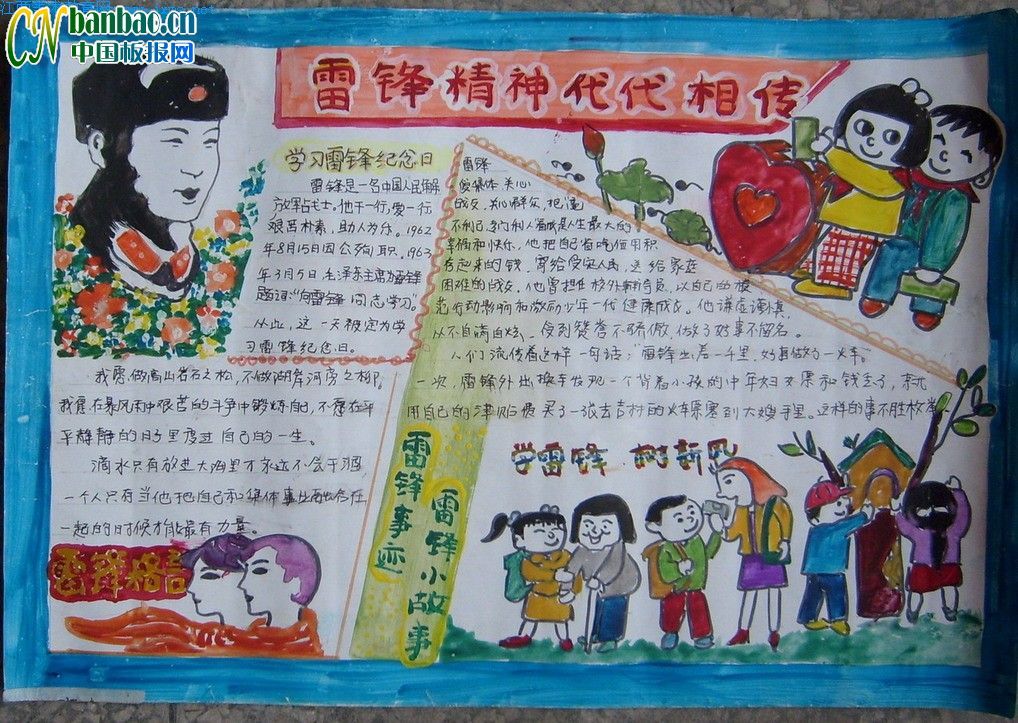 CN banbao.cn
中国板报网
雷锋精神代代相传
学习雷锋纪念日
雷锋是一名中国人民解
放军战士,他干一行,爱一行
艰苦朴素,助人为乐。1962
年8月15日因公殉职。1963
年3月5日毛泽东主席为雷锋
题词:“向雷锋同志学习”。
从此,这一天被定为学
习雷锋纪念日。
我愿做高山岩石之松,不做湖岸河旁之柳。
我愿在暴风雨中艰苦的斗争中锻炼自己,不愿在平
平静静的日子里度过自己的一生。
滴水只有放进大海里才永远不会干涸
一个人只有当他把自己和集体事业融合在
一起的时候才能最有力量。
雷锋格言
雷锋
爱集体 关心
战友,
幸福和快乐,他把自己省吃俭用积
存起来的钱,寄给受灾人民,送给家庭
困难的战友,他曾担任校外辅导员,以自己的模
范行动影响和激励少年一代健康成长。他谦虚谨慎
从不自满自炫、受到赞誉不骄傲 做了好事不留名。
人们流传着这样一句话:“雷锋出差一千里,好事做了一火车。”
一次,雷锋外出换车发现一个背着小孩的中年妇女票和钱丢了,就
用自己的津贴费买了一张去吉林的火车票塞到大嫂手里。这样的事不胜枚举
雷锋事迹
雷锋小故事
学雷锋 树新风